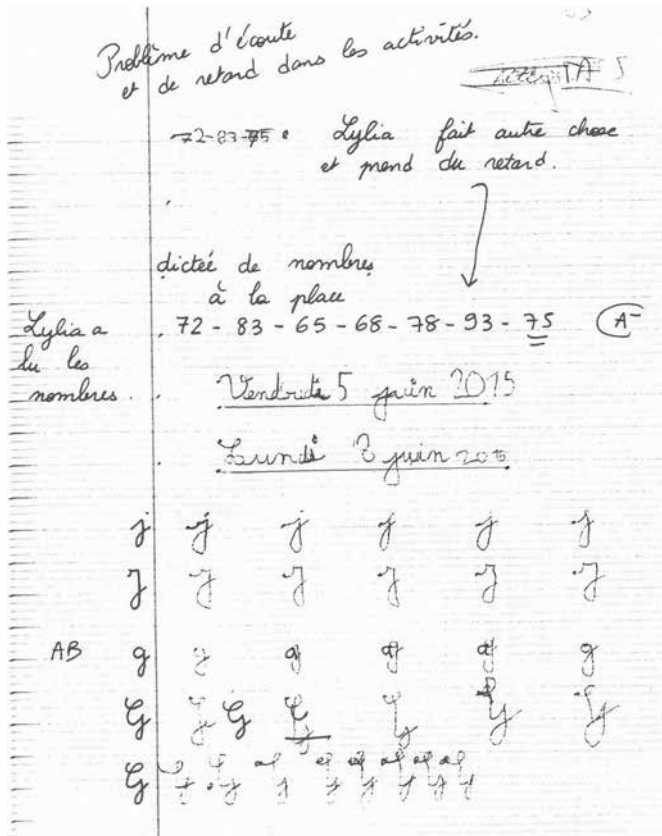 Problème d'écoute
et de retard dans les activités.
72-83-75 • Lylia fait autre chose
et prend du retard.
dictée de nombres
à la place
Lylia a
lu les
nombres.
72 - 83 - 65 - 68 - 78 - 93 - 75 A-
Vendredi 5 juin 2015
Lundi 8 juin 2015
j j j j j j
J J J J J J
AB g g g g g g
G G G G G G G
G